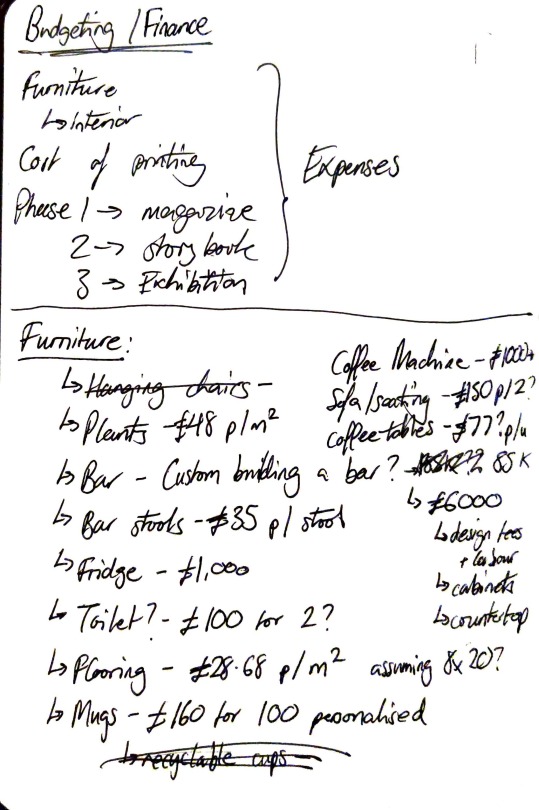 Budgeting / Finance
Furniture
↳ Interior
Cost of printing
Phase 1 → magazine
2 → story book
3 → Exhibition
Expenses
Furniture:
↳ Hanging chairs –
↳ Plants – £48 p/m²
↳ Bar – Custom building a bar?
↳ Bar stools – £35 p/ stool
↳ Fridge – £1,000
↳ Toilet? – £100 for 2?
↳ Flooring – £28.68 p/m² assuming 8x20?
↳ Mugs – £160 for 100 personalised
↳ recyclable cups –
Coffee Machine – £1000+
Sofa/seating – £150 p/2?
Coffee tables – £77? p/u
85K
↳ £6000
↳ design fees
+ labour
↳ cabinets
↳ countertop